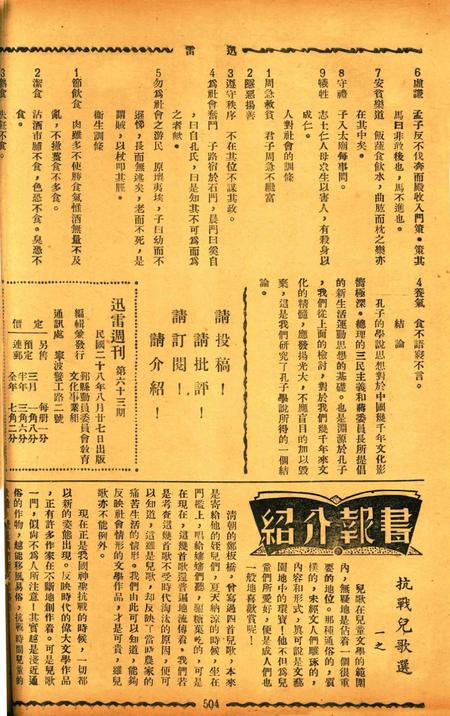 迅雷
6 虛讓　孟子反不伐奔而殿將入門策。策其
馬曰非敢後也，馬不進也。
7 安貧樂道　飯蔬食飲水，曲肱而枕之樂亦
在其中矣。
8 守禮　子入太廟每事問。
9 犧牲　志士仁人毋求生以害人，有殺身以
成仁。
人對社會的訓條
1 周急救貧　君子周急不繼富
2 隱惡揚善
3 遵守秩序　不在其位不謀其政。
4 為社會奮鬥　子路宿於石門，晨門曰奚自
，曰自孔氏，曰是知其不可為而為
之者歟。
5 勿為社會之游民　原壤夷埃，子曰幼而不
遜悌，長而無述矣，老而不死，是
謂賊，以杖叩其脛。
衛生訓條
1 節飲食　肉雖多不使勝食氣惟酒無量不及
亂，不撤薑食不多食。
2 潔食　沽酒市脯不食，色惡不食。臭惡不
食。
4 養氣　食不語寢不言。
結論
孔子的學說思想對於中國幾千年文化影
響極深。總理的三民主義和蔣委員長所提倡
的新生活運動思想的基礎。也是淵源於孔子
，我們從上面的檢討，對於我們幾千年來文
化的精髓，應發揚光大，不應盲目的加以毀
棄，這是我們研究了孔子學說所得的一個結
論。
請投稿！
請批評！
請訂閱！
請介紹！
迅雷週刊　第六十三期
民國二十八年八月廿七日出版
編輯兼發行　鄞縣動員委員會教育
文化事業組
通訊處　寧波警工路二號
定　另售　每冊一分
預定　三月一角八分
價　連郵　半年三角六分
全年七角二分
書報介紹
抗戰兒歌選　之一
兒歌在兒童文學的範圍
內，無疑地是佔着一個很重
要的地位。那種通俗的，質
樸的，未經文人們雕琢的，
內容和形式，真可說是文藝
園地中的瓌寶！他不但為兒
童們所愛好，便是成人們也
一般地喜歡賞呢！
清朝的鄭板橋，曾寫過四首兒歌，本來
是寄給他的姪兒們，夏天納涼的時候，坐在
門檻上，唱給嬸嬸們聽，騙糖菓吃的，可是
在現在，這幾首歌還普遍地流傳着。我們若
是考查這幾首歌不受時代淘汰的原因，便可
以知道，這雖是兒歌，却反映了當時農家的
痛苦生活的情形。我們由此可以知道，能夠
反映社會情形的文學作品，才是可貴，雖兒
歌亦不能例外。
現在正是我國神聖抗戰的時候，一切都
以新的姿態出現。反映時代的偉大文學作品
，正有許多作家在不斷地創作着。可是兒歌
一門，似尚不為人所注意！其實越是淺近通
俗的作物，越能移風易俗，抗戰時間兒童的
504